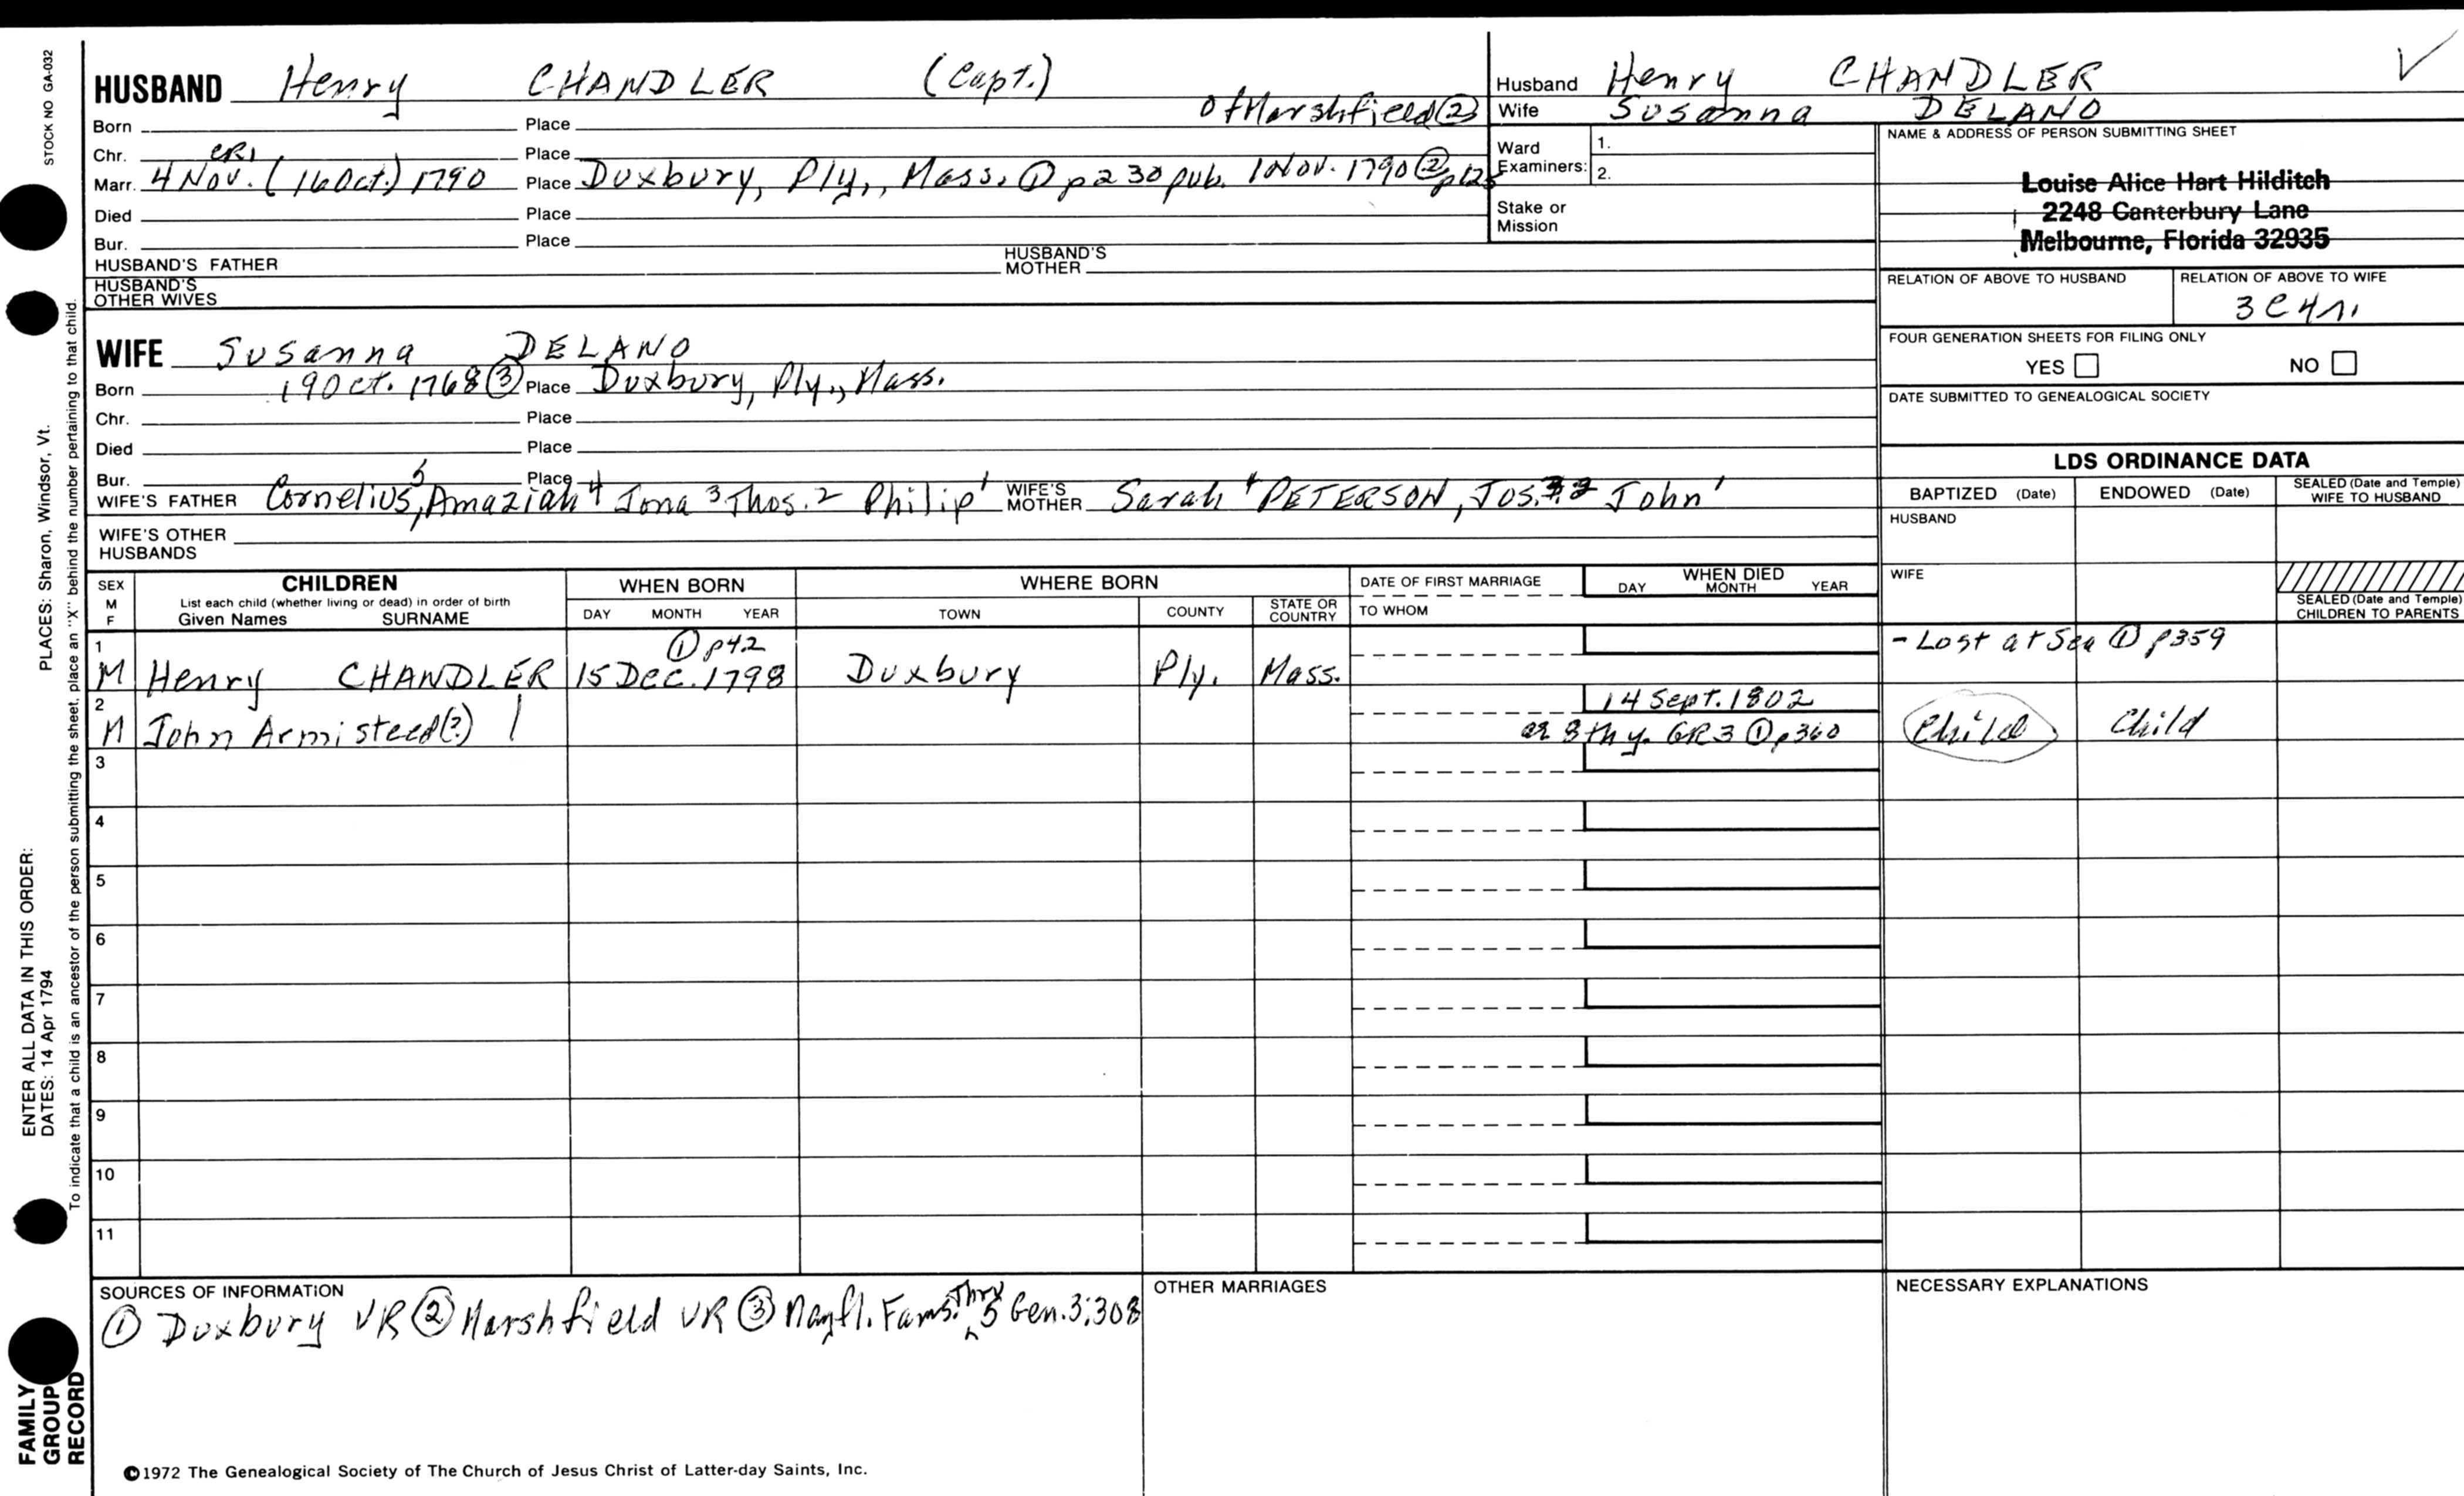 STOCK NO GA-032
HUSBAND Henry CHANDLER (Capt.)
of Marshfield ②
Born Place
Chr. CR1 Place
Marr. 4 Nov. (16 Oct.) 1790 Place Duxbury, Ply., Mass. ① p230 pub. 1 Nov. 1790 ② p125
Died Place
Bur. Place
HUSBAND'S FATHER HUSBAND'S MOTHER
HUSBAND'S OTHER WIVES
Husband Henry CHANDLER
Wife Susanna DELANO
Ward Examiners: 1.
2.
Stake or Mission
NAME & ADDRESS OF PERSON SUBMITTING SHEET
Louise Alice Hart Hilditch
2248 Canterbury Lane
Melbourne, Florida 32935
RELATION OF ABOVE TO HUSBAND RELATION OF ABOVE TO WIFE
3C4r.
FOUR GENERATION SHEETS FOR FILING ONLY
YES NO
DATE SUBMITTED TO GENEALOGICAL SOCIETY
WIFE Susanna DELANO
Born 19 Oct. 1768 ③ Place Duxbury, Ply., Mass.
Chr. Place
Died Place
Bur. Place
WIFE'S FATHER Cornelius 5, Amaziah 4 Jona 3 Thos. 2 Philip 1 WIFE'S MOTHER Sarah 4 PETERSON, Jos. 3 2 John 1
WIFE'S OTHER HUSBANDS
LDS ORDINANCE DATA
BAPTIZED (Date) ENDOWED (Date) SEALED (Date and Temple) WIFE TO HUSBAND
HUSBAND
WIFE
SEALED (Date and Temple) CHILDREN TO PARENTS
SEX M F
CHILDREN
List each child (whether living or dead) in order of birth
Given Names SURNAME
WHEN BORN
DAY MONTH YEAR
WHERE BORN
TOWN COUNTY STATE OR COUNTRY
DATE OF FIRST MARRIAGE
TO WHOM
WHEN DIED
DAY MONTH YEAR
1 ① p42 - Lost at Sea ① p359
M Henry CHANDLER 15 Dec. 1798 Duxbury Ply. Mass.
2 14 Sept. 1802
M John Armisteed(?) ae 8th y. GR3 ① p360 Child Child
3
4
5
6
7
8
9
10
11
SOURCES OF INFORMATION
① Duxbury VR ② Marshfield VR ③ Mayfl. Fams. Thru 5 Gen. 3:308
OTHER MARRIAGES
NECESSARY EXPLANATIONS
©1972 The Genealogical Society of The Church of Jesus Christ of Latter-day Saints, Inc.
PLACES: Sharon, Windsor, Vt.
ENTER ALL DATA IN THIS ORDER:
DATES: 14 Apr 1794
To indicate that a child is an ancestor of the person submitting the sheet, place an "X" behind the number pertaining to that child.
FAMILY GROUP RECORD